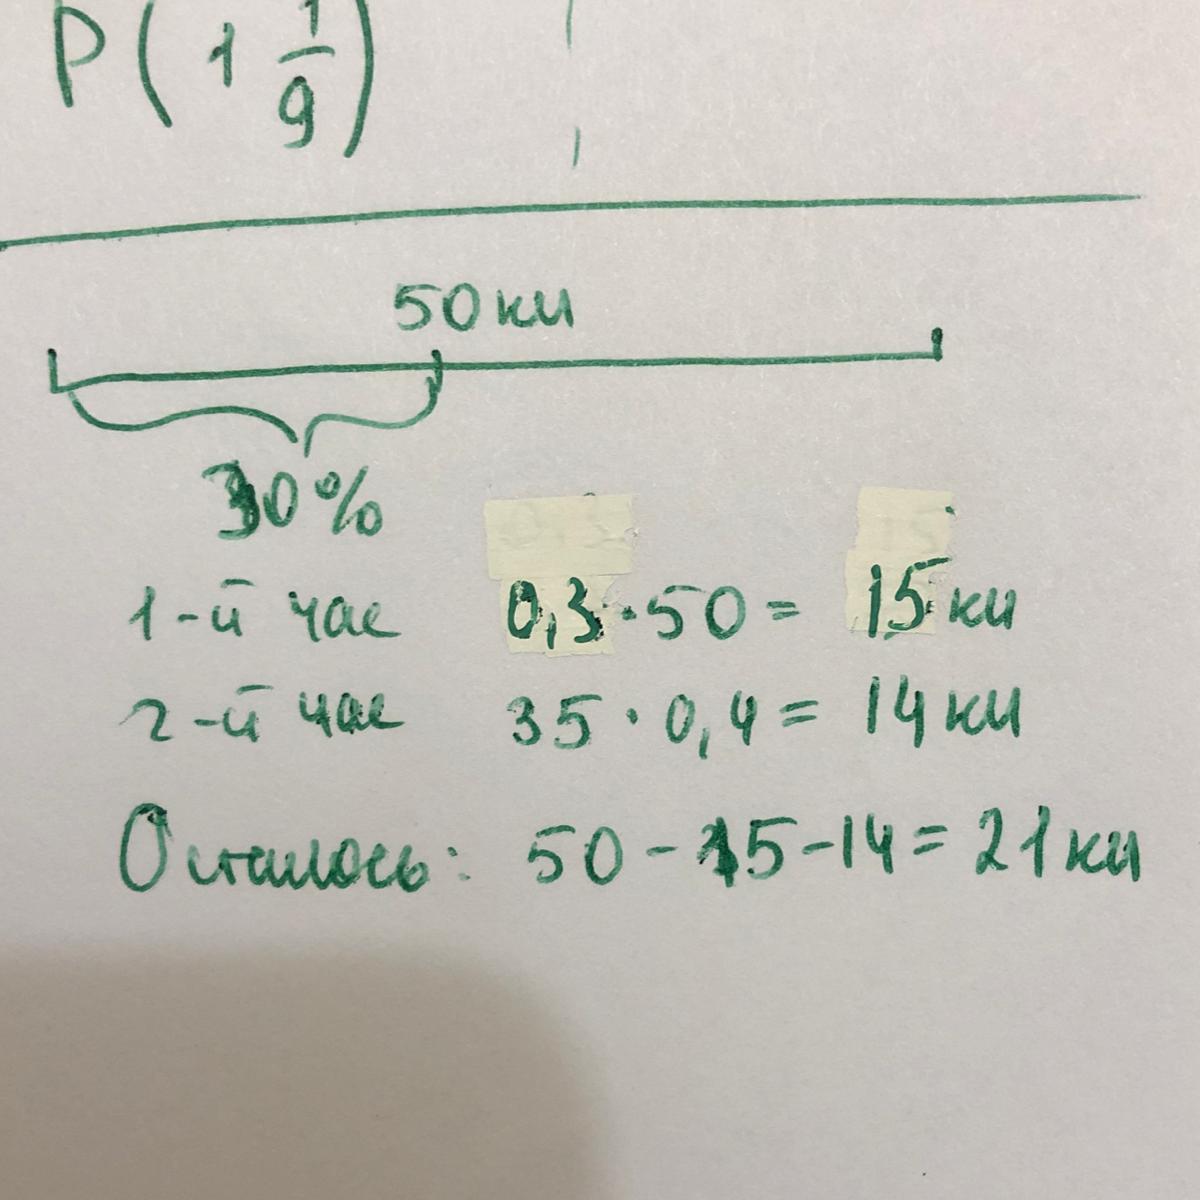 P(1 1/9)
50 км
30%
1-й час 0,3·50 = 15 км
2-й час 35·0,4 = 14 км
Осталось: 50-15-14 = 21 км